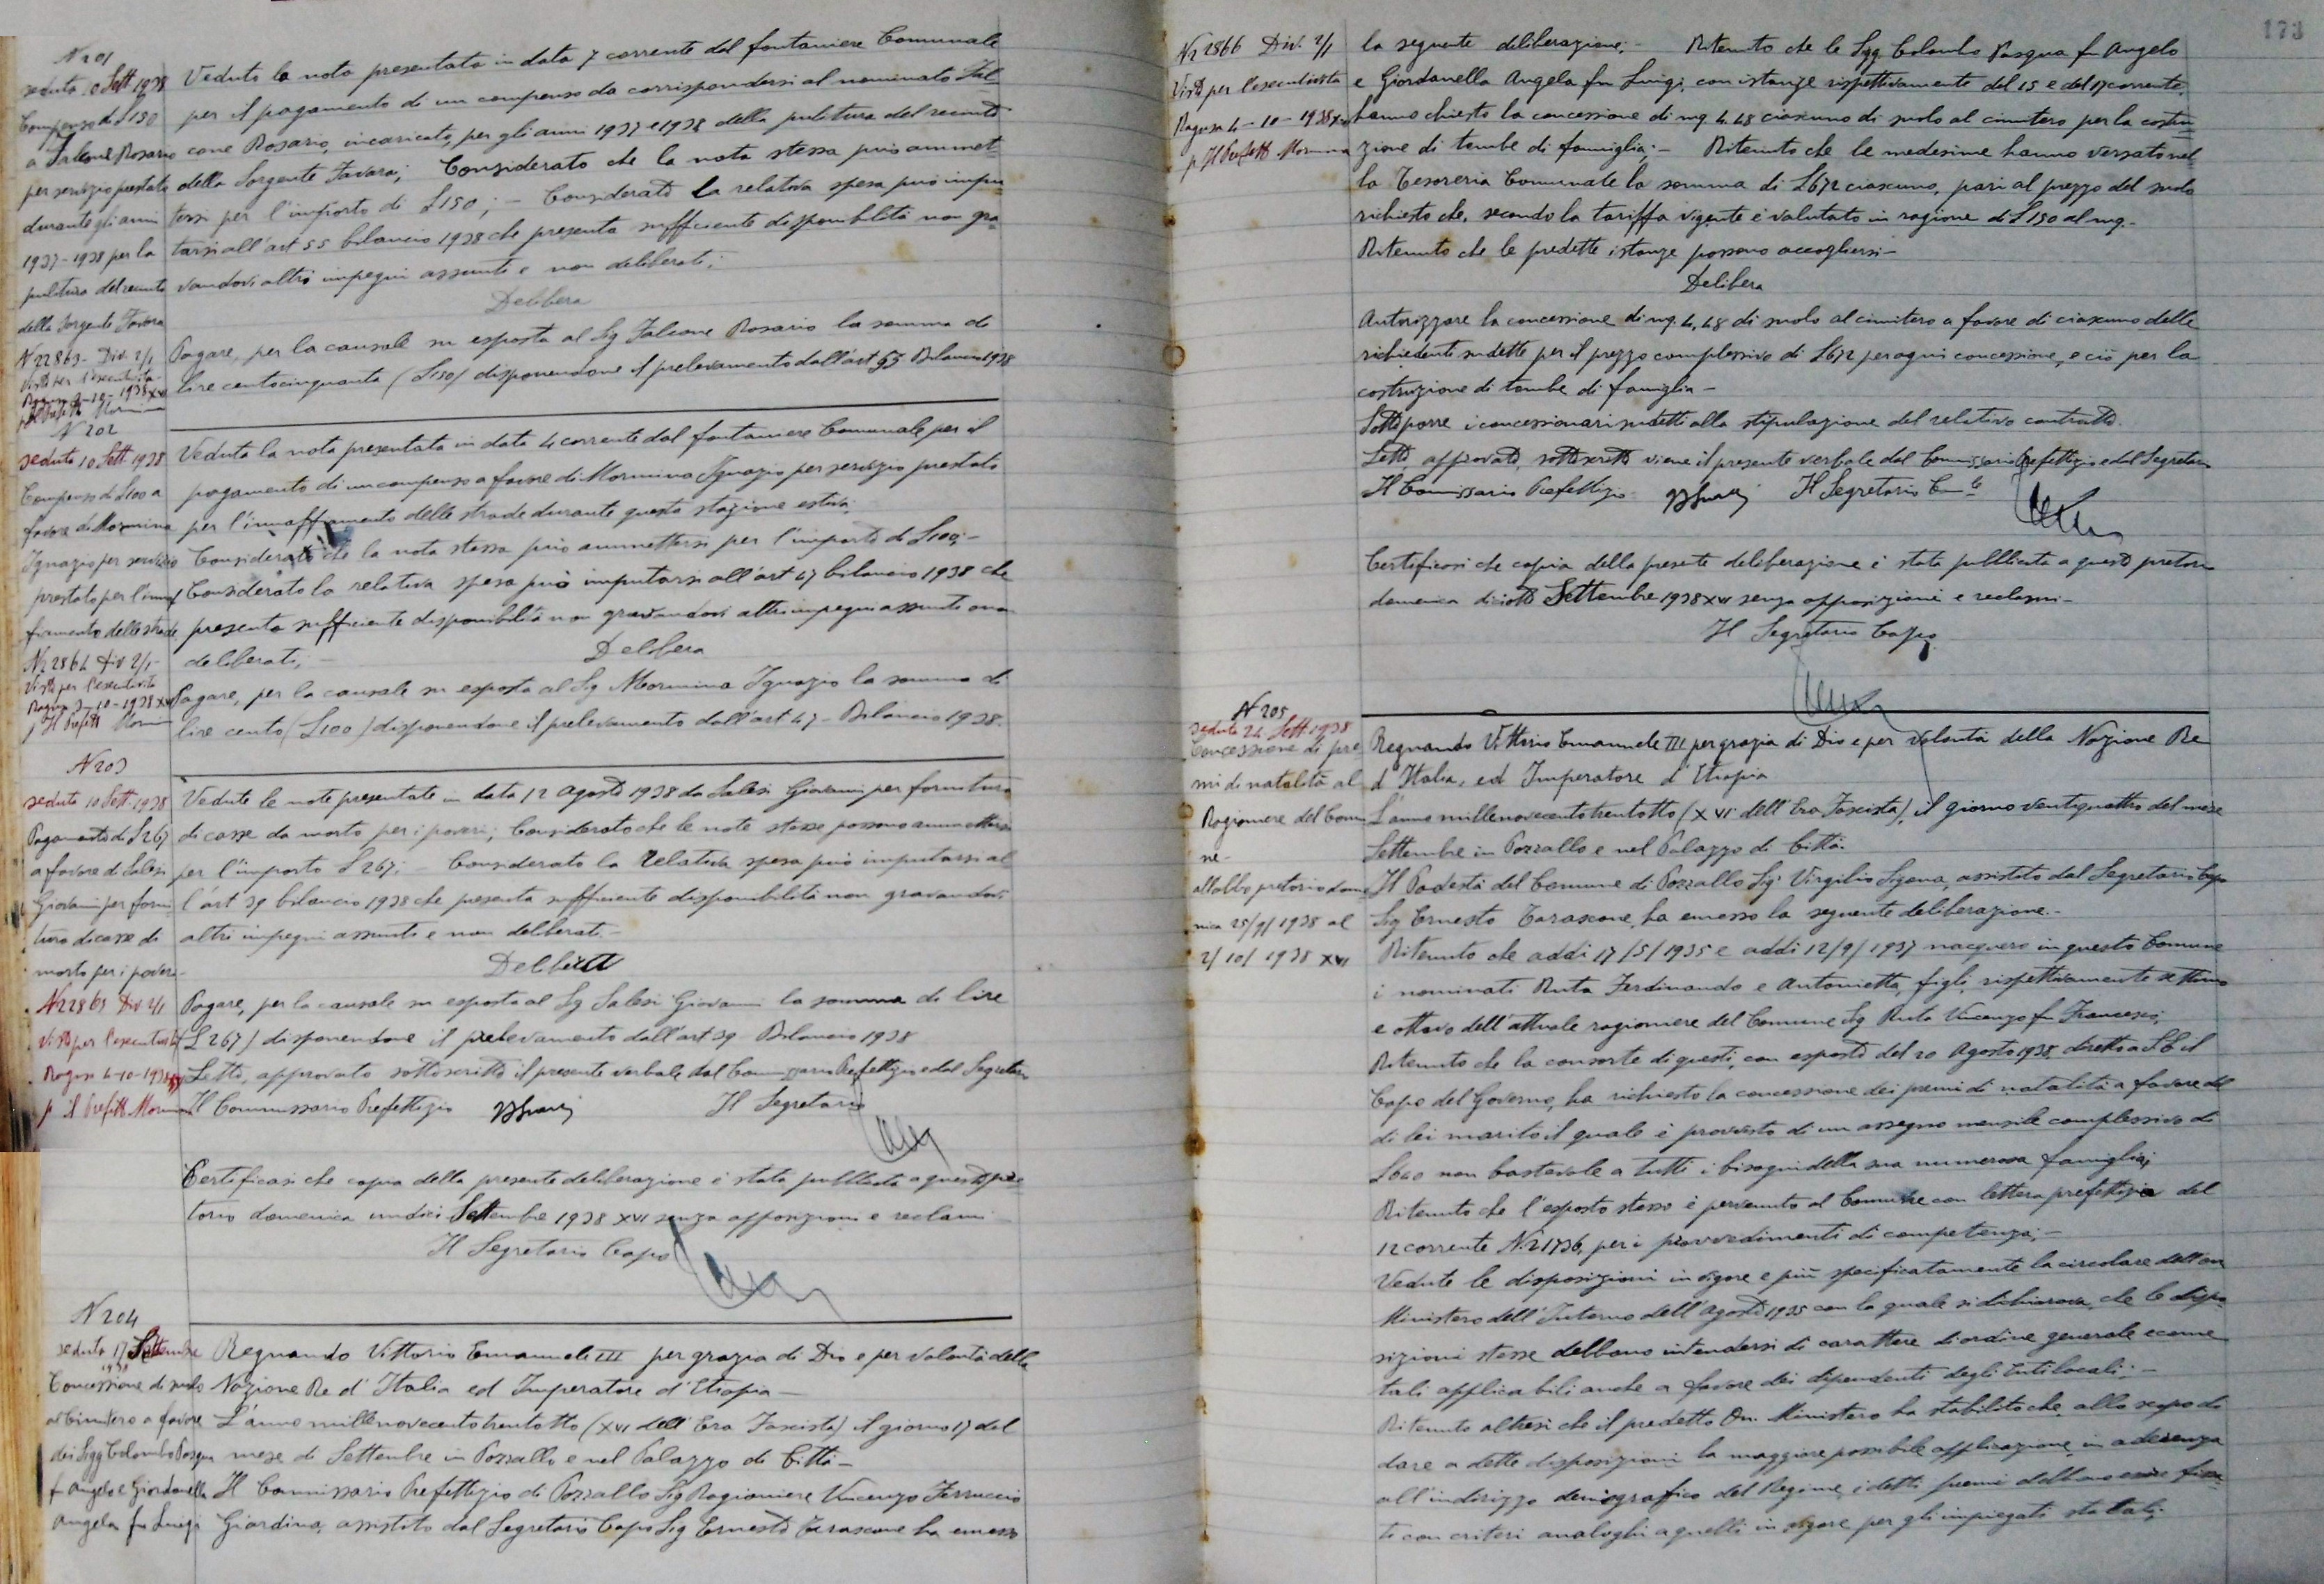 N 201
seduta 10 Sett 1938
Compenso di £150
a Falcone Rosario
per servizio prestato
durante gli anni
1937-1938 per la
pulitura del recinto
della sorgente Favara
N 22863 - Div. 2/1
Visto per l'esecutività
Ragusa 3-10-1938 XVI
p. Il Prefetto Mormina
Veduta la nota presentata in data 7 corrente dal fontaniere Comunale
per il pagamento di un compenso da corrispondersi al nominato Fal
cone Rosario, incaricato, per gli anni 1937 e 1938 della pulitura del recinto
della Sorgente Favara; Considerato che la nota stessa può ammet-
tersi per l'importo di £150; - Considerato la relativa spesa può impu
tarsi all'art 55 bilancio 1938 che presenta sufficiente disponibilità non gra
vandovi altri impegni assunti e non deliberati;
Delibera
Pagare, per la causale su esposta al Sig Falcone Rosario la somma di
lire centocinquanta (£150) disponendone il prelevamento dall'art 55 Bilancio 1938
N 202
seduta 10 Sett. 1938
Compenso di £100 a
favore di Mormina
Ignazio per servizio
prestato per l'innaf
fiamento delle strade
N 22864 Div 2/1-
Visto per l'esecutività
Ragusa 3-10-1938 XVI
p Il Prefetto Mormina
Veduta la nota presentata in data 4 corrente dal fontaniere Comunale per il
pagamento di un compenso a favore di Mormina Ignazio per servizio prestato
per l'innaffiamento delle strade durante questa stagione estiva;
Considerato che la nota stessa può ammettersi per l'importo di £100;-
Considerato la relativa spesa può imputarsi all'art 47 bilancio 1938 che
presenta sufficiente disponibilità non gravandovi altri impegni assunti e non
deliberati; -
Delibera
Pagare, per la causale su esposta al Sig Mormina Ignazio la somma di
lire cento (£100) disponendone il prelevamento dall'art 47 - Bilancio 1938.
N 203
seduta 10 Sett. 1938
Pagamento di £267
a favore di Salesi
Giovanni per forni
tura di casse da
morto per i poveri-
N 22865 Div 2/1
Visto per l'esecutività
Ragusa 4-10-1938 XVI
p il Prefetto Mormina
Vedute le note presentate in data 12 agosto 1938 da Salesi Giovanni per fornitura
di casse da morto per i poveri; Considerato che le note stesse possono ammettersi
per l'importo £267; - Considerato la relativa spesa può imputarsi al
l'art 39 bilancio 1938 che presenta sufficiente disponibilità non gravandovi
altri impegni assunti e non deliberati.-
Delibera
Pagare, per la causale su esposta al Sig Salesi Giovanni la somma di lire
(£267) disponendone il prelevamento dall'art 39 - Bilancio 1938
Letto, approvato sottoscritto il presente verbale dal Commissario Prefettizio e dal Segretario
Il Commissario Prefettizio Il Segretario
Certificasi che copia della presente deliberazione è stata pubblicata a questo pre
torio domenica undici Settembre 1938 XVI senza opposizioni e reclami
Il Segretario Capo
N 204
seduta 17 Settembre
1938
Concessione di suolo
al Cimitero a favore
dei Sigg Colombo Pasqua
fu Angelo e Giordanella
Angela fu Luigi
Regnando Vittorio Emanuele III per grazia di Dio e per volontà della
Nazione Re d'Italia ed Imperatore d'Etiopia -
L'anno millenovecentotrentotto (XVI dell'Era Fascista) il giorno 17 del
mese di Settembre in Pozzallo e nel Palazzo di Città -
Il Commissario Prefettizio di Pozzallo Sig Ragioniere Vincenzo Ferruccio
Giardina, assistito dal Segretario Capo Sig Ernesto Tarascone ha emesso
173
N 22866 Div. 2/1
Visto per l'esecutività
Ragusa 4-10-1938 XVI
p Il Prefetto Mormina
la seguente deliberazione; - Ritenuto che le Sigg. Colombo Pasqua fu Angelo
e Giordanella Angela fu Luigi, con istanze rispettivamente del 15 e del 17 corrente,
hanno chiesto la concessione di mq 4.48 ciascuno di suolo al cimitero per la costru-
zione di tombe di famiglia; - Ritenuto che le medesime hanno versato nel
la Tesoreria Comunale la somma di £672 ciascuno, pari al prezzo del suolo
richiesto che, secondo la tariffa vigente è valutato in ragione di £150 al mq.-
Ritenuto che le predette istanze possono accogliersi -
Delibera
Autorizzare la concessione di mq. 4,48 di suolo al cimitero a favore di ciascuno delle
richiedenti sudette per il prezzo complessivo di £672 per ogni concessione, e ciò per la
costruzione di tombe di famiglia -
Sottoporre i concessionari sudetti alla stipulazione del relativo contratto.
Letto, approvato, sottoscritto viene il presente verbale dal Commissario Prefettizio e dal Segretario
Il Commissario Prefettizio Il Segretario Com.le
Certificasi che copia della presente deliberazione è stata pubblicata a questo pretorio
domenica diciotto Settembre 1938 XVI senza opposizioni e reclami -
Il Segretario Capo
N 205
seduta 24 Sett 1938
Concessione di pre
mi di natalità al
Ragioniere del Comu
ne-
all'albo pretorio dome
nica 25/9/1938 al
2/10/1938 XVI
Regnando Vittorio Emanuele III per grazia di Dio e per volontà della Nazione Re
d'Italia, ed Imperatore d'Etiopia
L'anno millenovecentotrentotto (XVI dell'Era Fascista), il giorno ventiquattro del mese
Settembre in Pozzallo e nel Palazzo di Città.
Il Podestà del Comune di Pozzallo Sig. Virgilio Sigona, assistito dal Segretario Capo
Sig Ernesto Tarascone, ha emesso la seguente deliberazione.-
Ritenuto che addì 17/5/1935 e addì 12/9/1937 nacquero in questo Comune
i nominati Ruta Ferdinando e Antonietta, figli, rispettivamente settimo
e ottavo dell'attuale ragioniere del Comune Sig Ruta Vincenzo fu Francesco;
Ritenuto che la consorte di questi, con esposto del 20 Agosto 1938, diretto a S.E. il
Capo del Governo, ha richiesto la concessione dei premi di natalità a favore del
di lei marito il quale è provvisto di un assegno mensile complessivo di
£640 non bastevole a tutti i bisogni della sua numerosa famiglia;
Ritenuto che l'esposto stesso è pervenuto al Comune con lettera prefettizia del
12 corrente N. 21736, per i provvedimenti di competenza; -
Vedute le disposizioni in vigore e più specificatamente la circolare dell'on
Ministero dell'Interno dell'Agosto 1935 con la quale si dichiarava, che le dispo-
sizioni stesse debbano intendersi di carattere di ordine generale e come
tali applicabili anche a favore dei dipendenti degli Enti locali; -
Ritenuto altresì che il predetto On. Ministero ha stabilito che, allo scopo di
dare a dette disposizioni la maggiore possibile applicazione in aderenza
all'indirizzo demografico del Regime, i detti premi debbano
ti con criteri analoghi a quelli in vigore per gli impiegati statali;